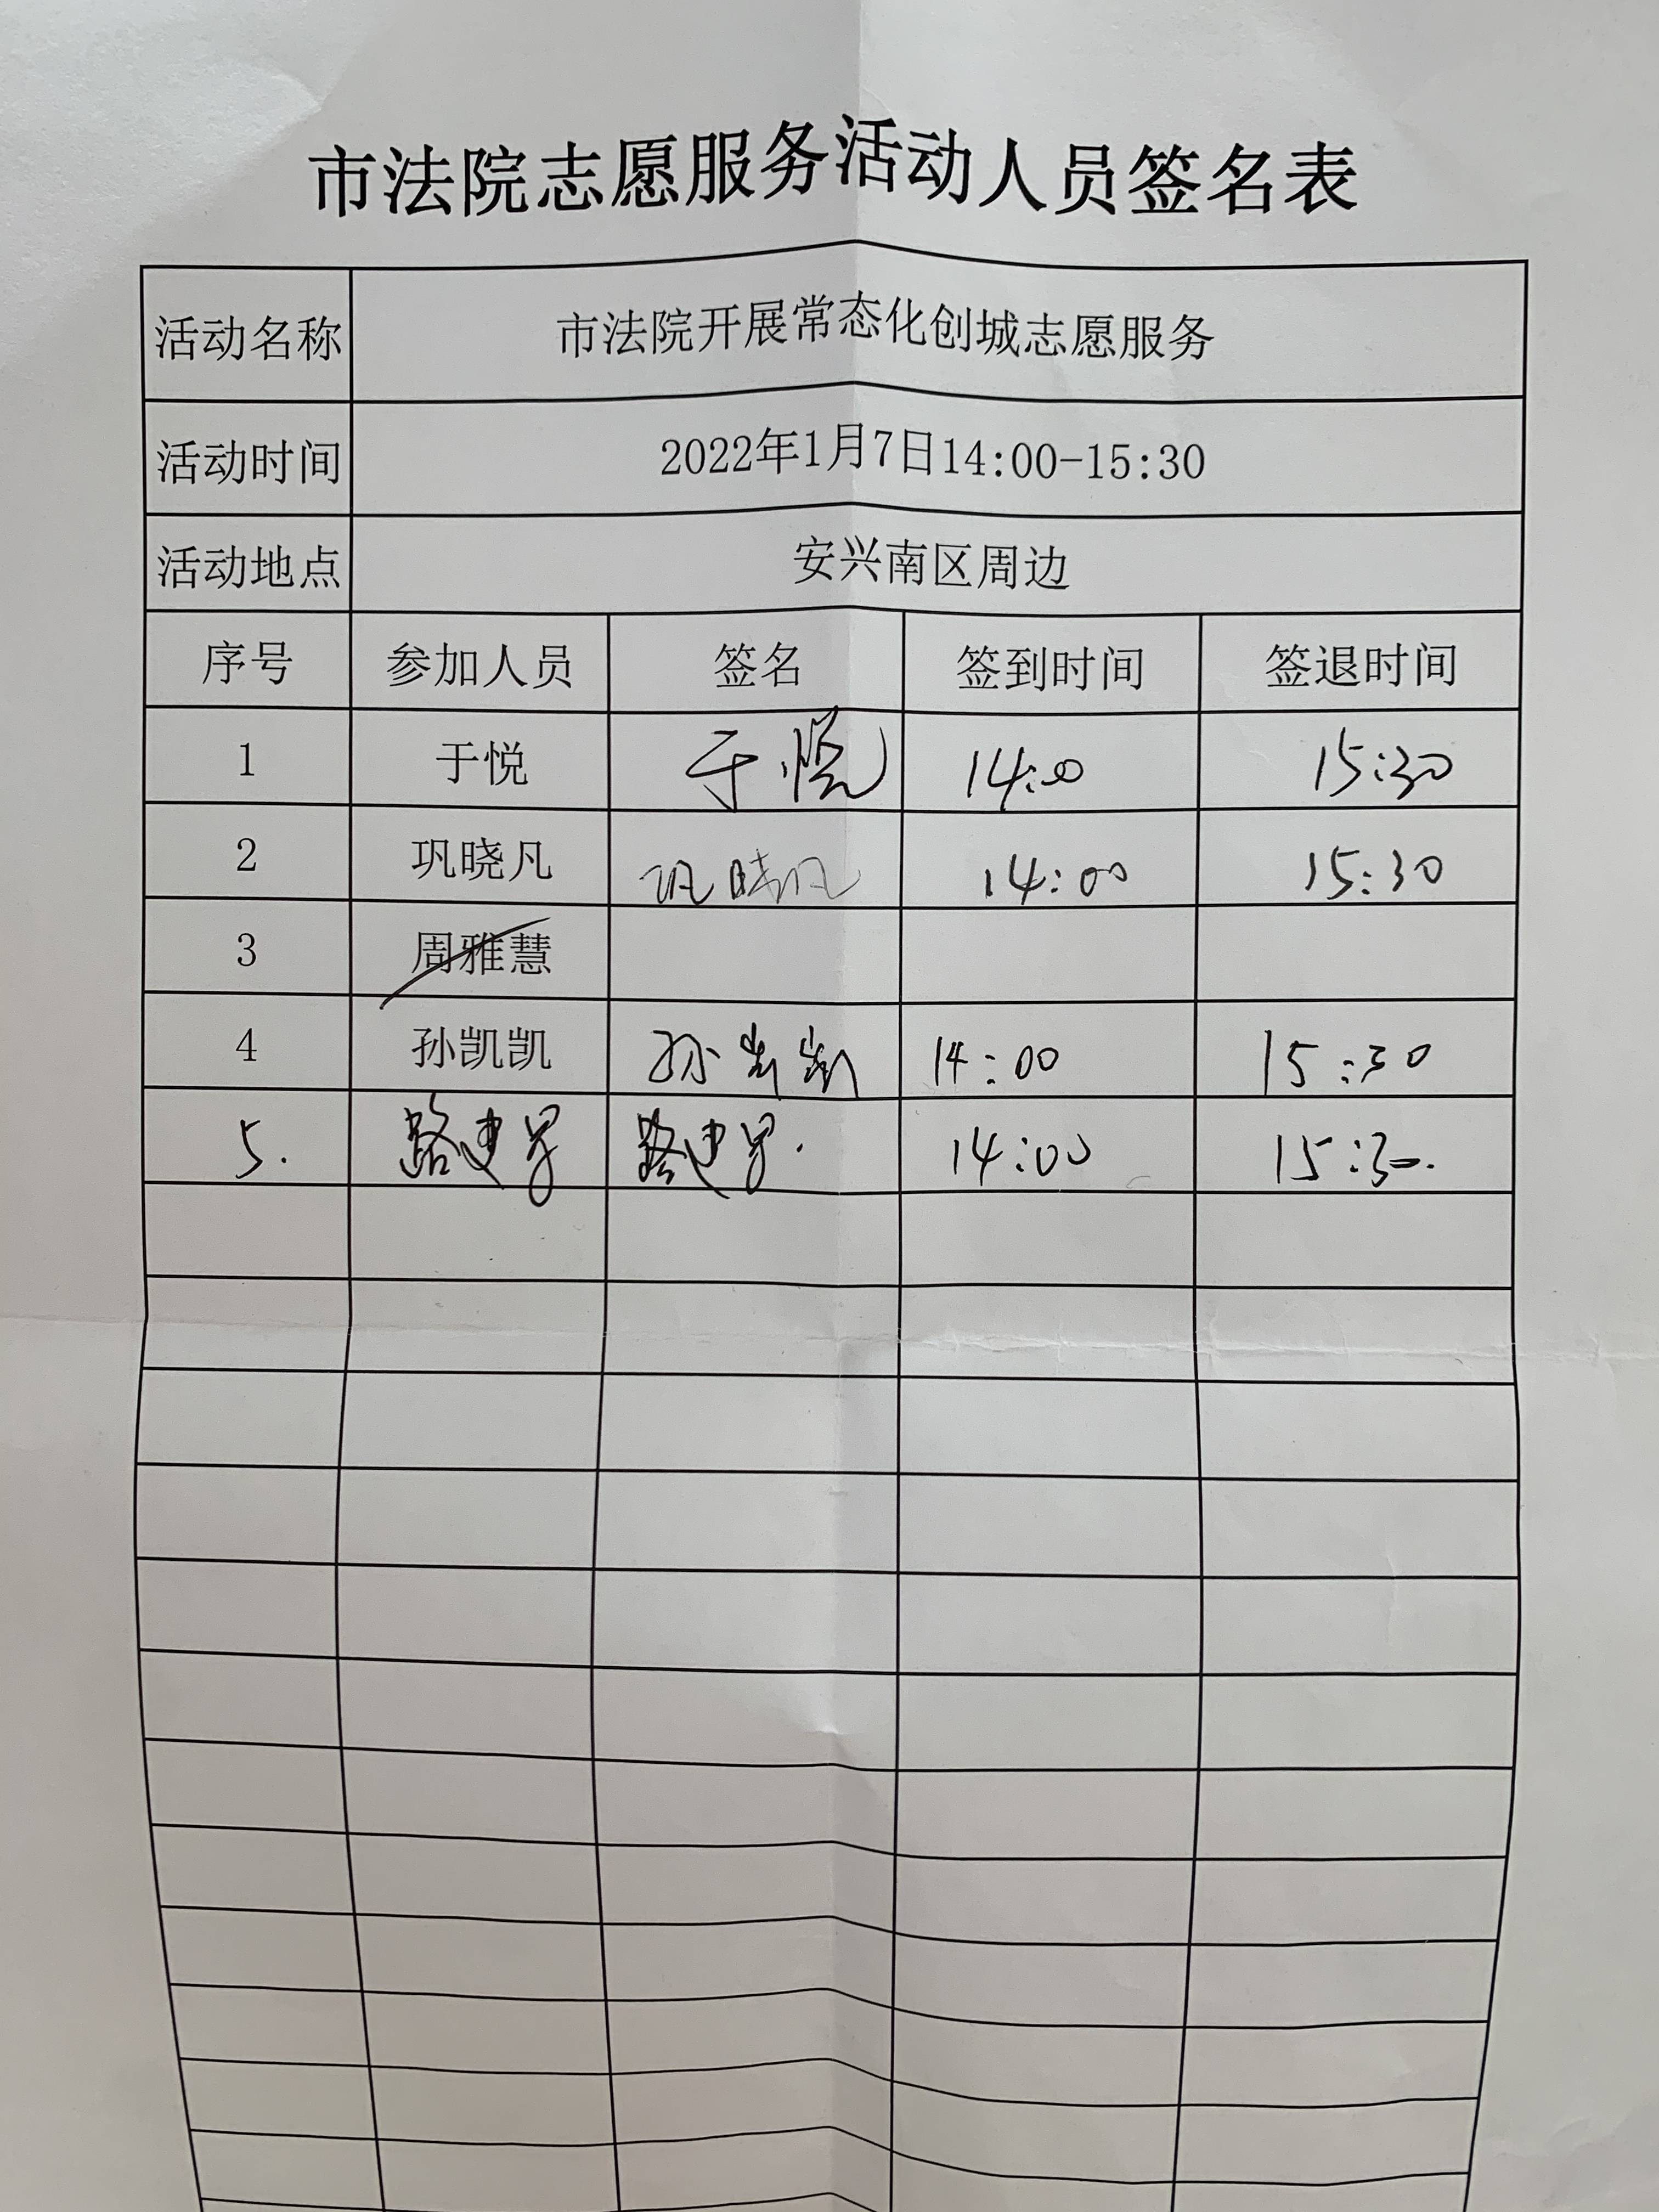 市法院志愿服务活动人员签名表
活动名称 市法院开展常态化创城志愿服务
活动时间 2022年1月7日14:00-15:30
活动地点 安兴南区周边
序号 参加人员 签名 签到时间 签退时间
1 于悦 于悦 14:00 15:30
2 巩晓凡 巩晓凡 14:00 15:30
3 周雅慧
4 孙凯凯 孙凯凯 14:00 15:30
5. 路建 路建 14:00 15:30.